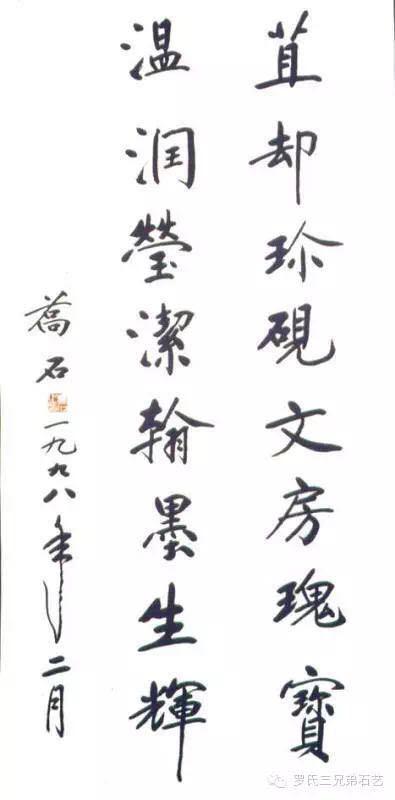 苴却珍硯文房瑰寶
温润瑩潔翰墨生輝
喬石一九九八年二月
罗氏三兄弟石艺